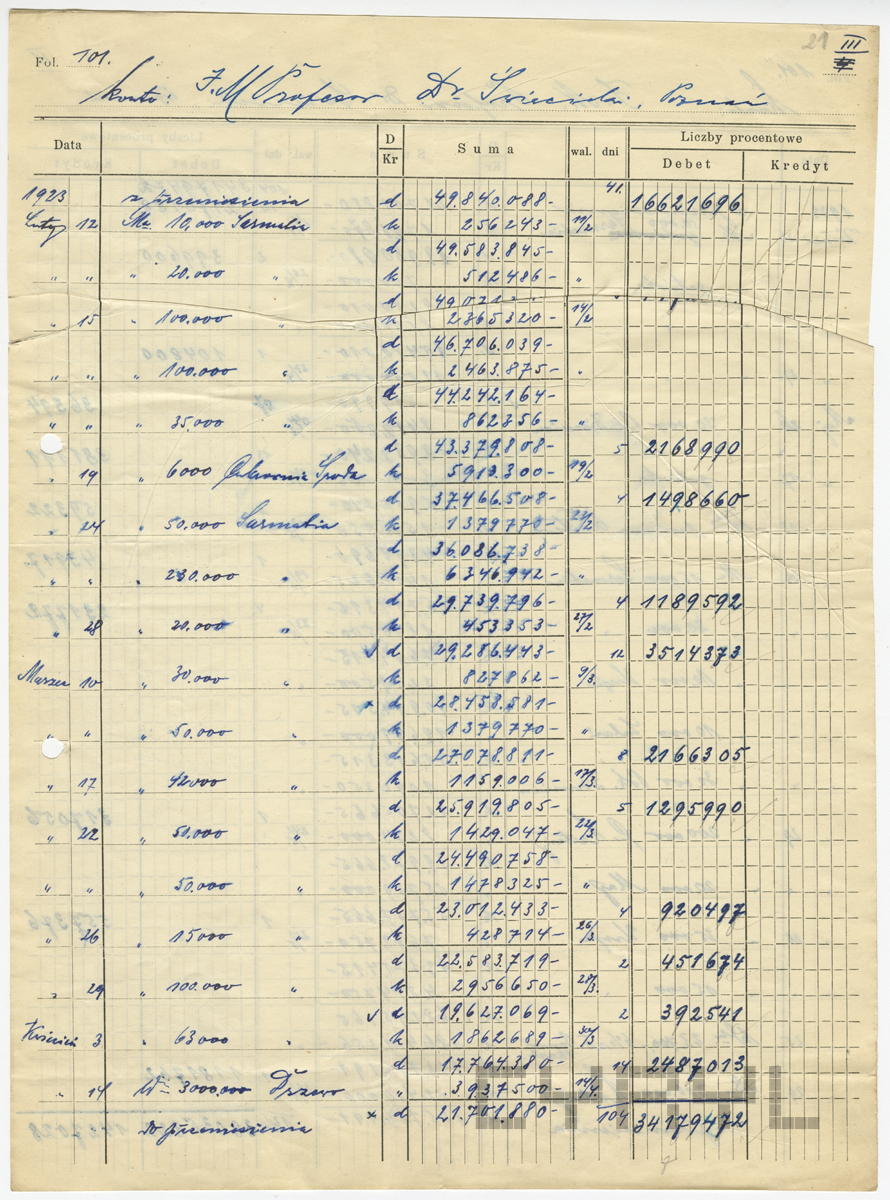 21 III
Fol. 101.
Konto: J. M. Profesor Dr. Święcicki, Poznań
Data D/Kr Suma wal. dni Liczby procentowe
Debet Kredyt
1923 z przeniesienia d 49.840.088- 41. 16621696
Luty 12 Mn. 10,000 Sarmatia k 256243- 11/2
d 49.583.845-
" " " 20.000 " k 512486- "
d 49.071
" 15 " 100.000 " k 2365320- 14/2
d 46.706.039-
" " " 100.000 " k 2463.875- "
d 44.242.164-
" " " 35.000 " k 862356- "
d 43.379.808- 5 2168990
" 19 " 6000 Cukrownia Środa k 5913.300- 19/2
d 37.466.508- 4 1498660
" 24 " 50.000 Sarmatia k 1379770- 23/2
d 36.086.738-
" " " 230.000 " k 6346.942- "
d 29.739.796- 4 1189592
" 28 " 20.000 " k 453353- 27/2
d 29.286.443- 12 3514373
Marzec 10 " 30.000 " k 827862- 9/3.
d 28.458.581-
" " " 50.000 " k 1379770- "
d 27.078.811- 8 2166305
" 17 " 42000 " k 1159.006- 17/3.
d 25.919.805- 5 1295990
" 22 " 50.000 " k 1429.047- 22/3.
d 24.490.758-
" " " 50.000 " k 1478325- "
d 23.012.433- 4 920497
" 26 " 15000 " k 428714- 26/3.
d 22.583.719- 2 451674
" 29 " 100.000 " k 2956650- 28/3.
d 19.627.069- 2 392541
Kwiecień 3 " 63000 " k 1862689- 30/3
d 17.764.380- 14 2487013
" 14 3000.000 Drzewo " 3937500- 14/4.
d 21.701.880- 104 34179472
do przeniesienia
CYRYL